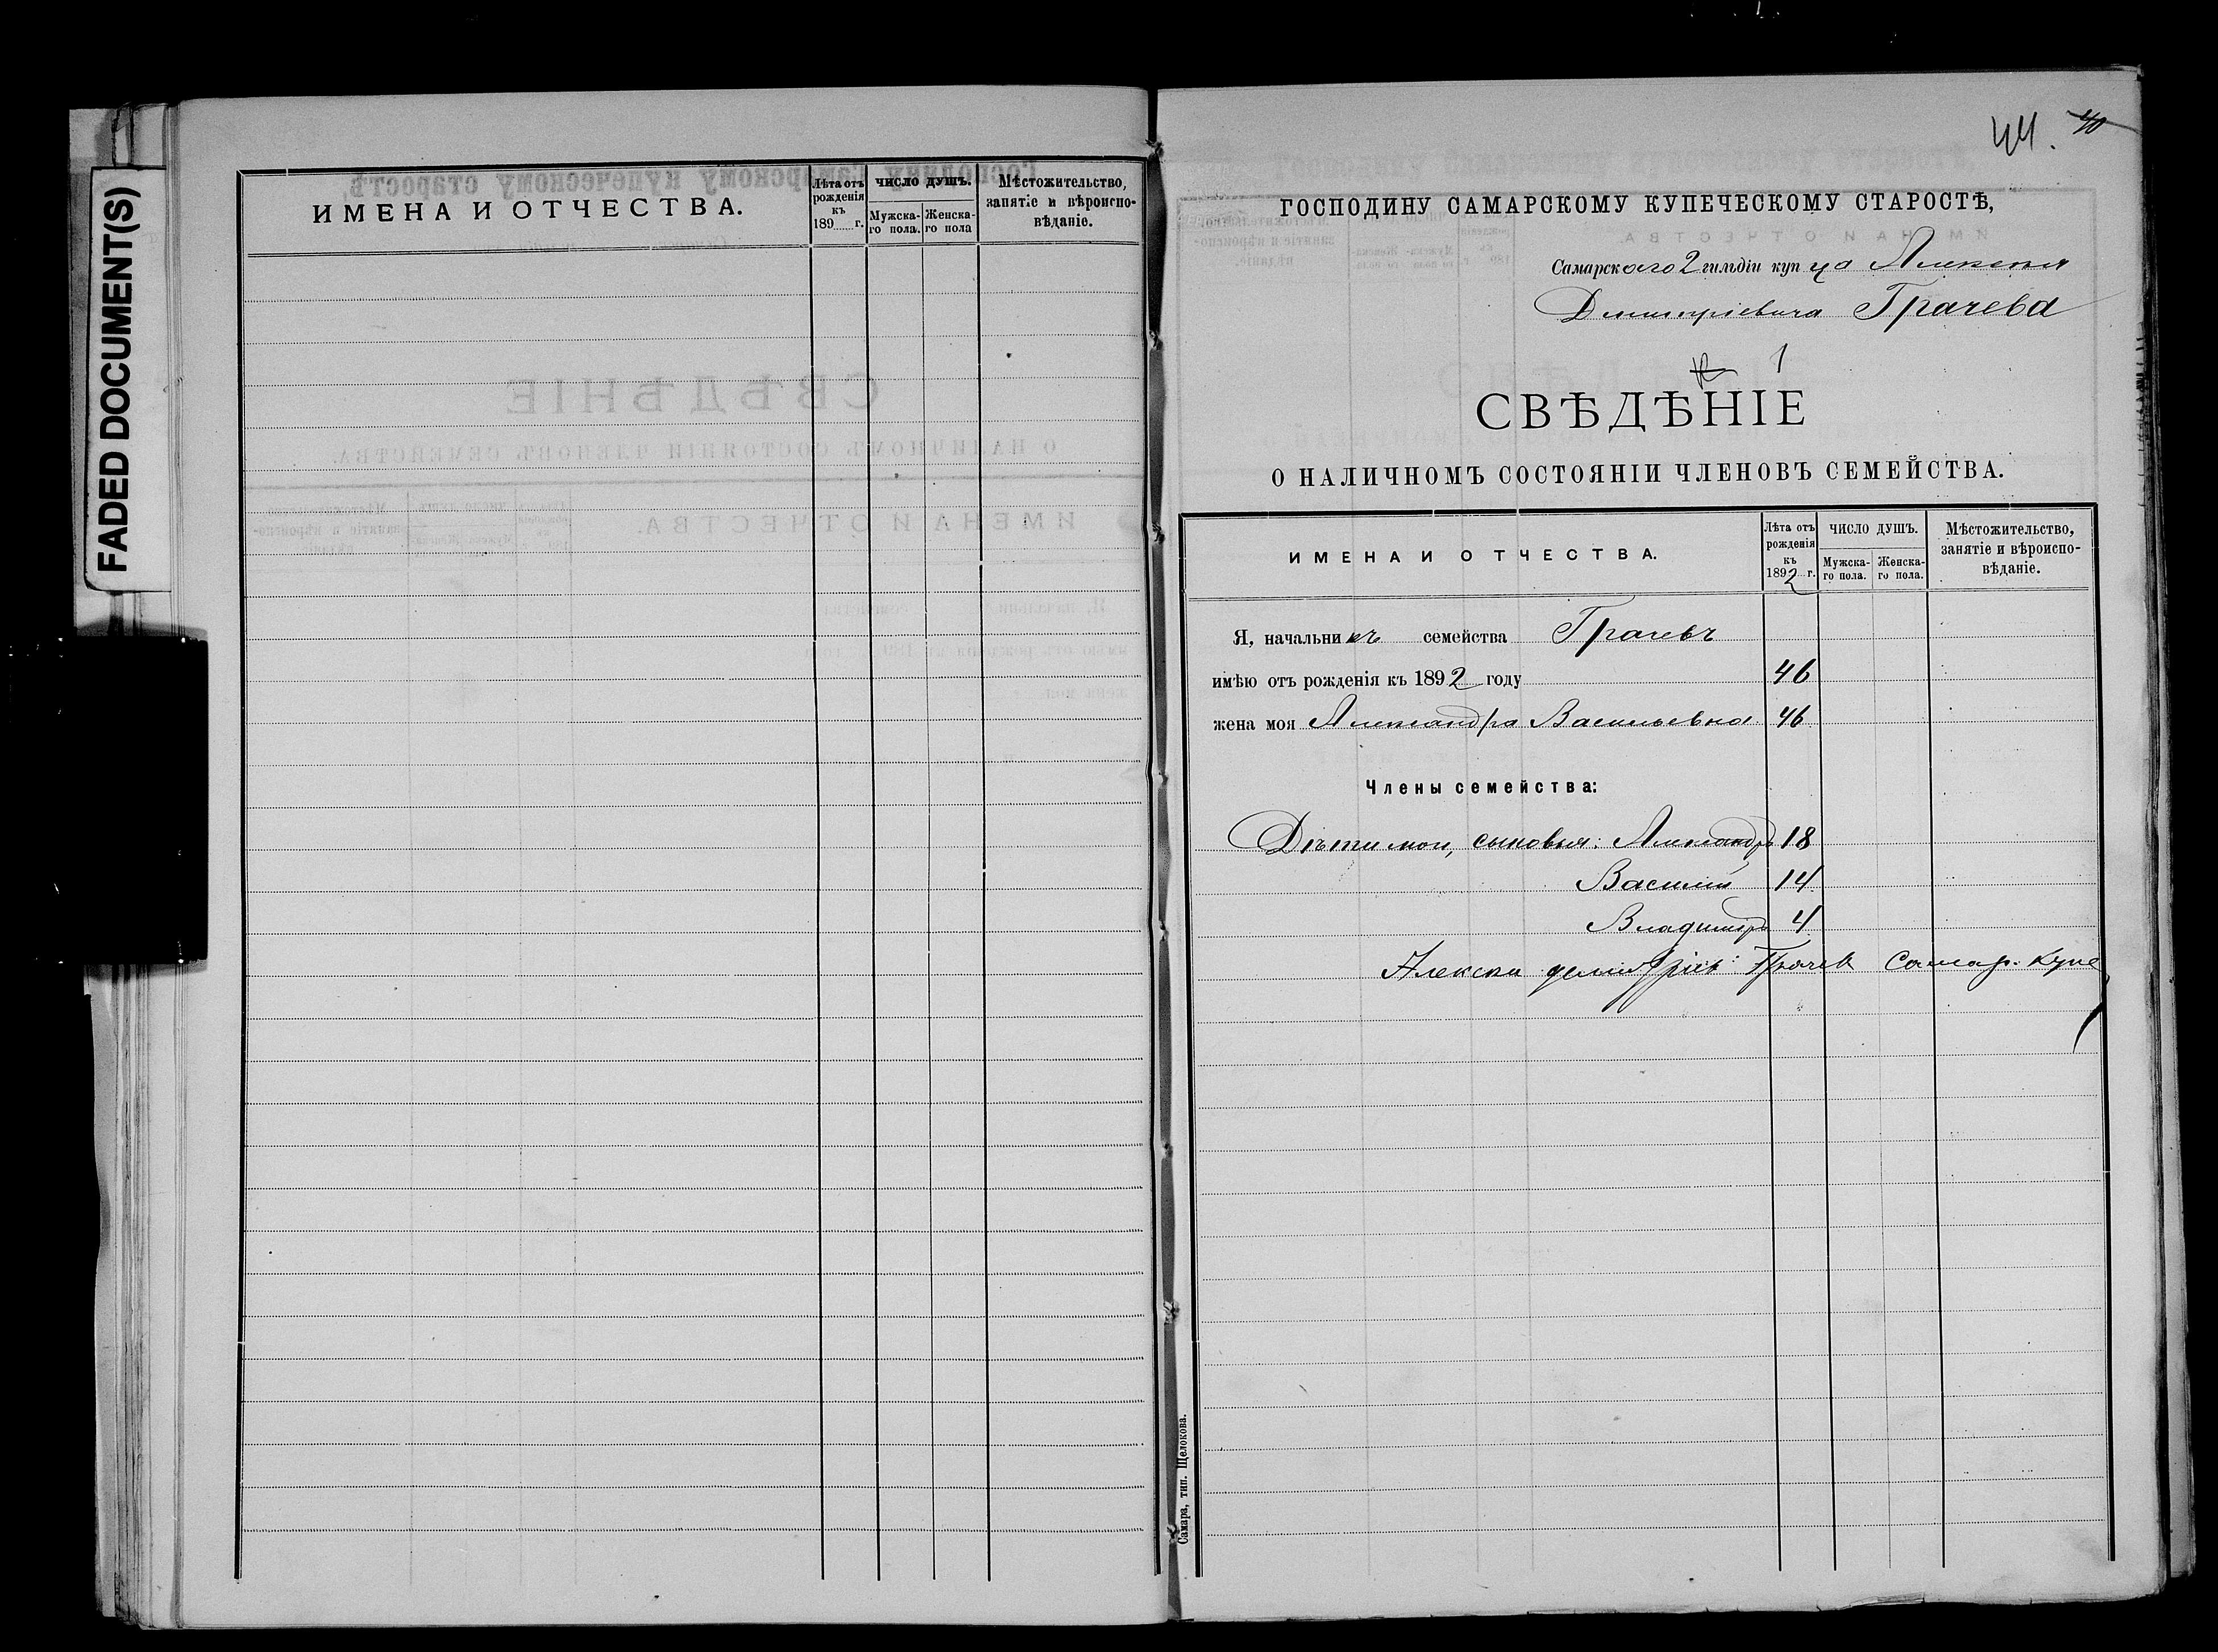 FADED DOCUMENT(S)
ИМЕНА И ОТЧЕСТВА.
Лѣта отъ рожденія къ 189 г.
ЧИСЛО ДУШЪ.
Мужска-го пола.
Женска-го пола
Мѣстожительство,
занятіе и вѣроиспо-
вѣданіе.
44. 40
ГОСПОДИНУ САМАРСКОМУ КУПЕЧЕСКОМУ СТАРОСТѢ,
Самарскаго 2 гильдіи купца Алексѣя
Дмитріевича Грачева
1
СВѢДѢНІЕ
О НАЛИЧНОМЪ СОСТОЯНІИ ЧЛЕНОВЪ СЕМЕЙСТВА.
ИМЕНА И ОТЧЕСТВА.
Лѣта отъ рожденія къ 1892 г.
ЧИСЛО ДУШЪ.
Мужска-го пола.
Женска-го пола.
Мѣстожительство,
занятіе и вѣроиспо-
вѣданіе.
Я, начальникъ семейства Грачевъ
имѣю отъ рожденія къ 1892 году 46
жена моя Александра Васильевна 46
Члены семейства:
Дѣти мои, сыновья: Александръ 18
Василій 14
Владиміръ 4
Алексей Грачев Самар. купе
Самара, тип. Щелокова.